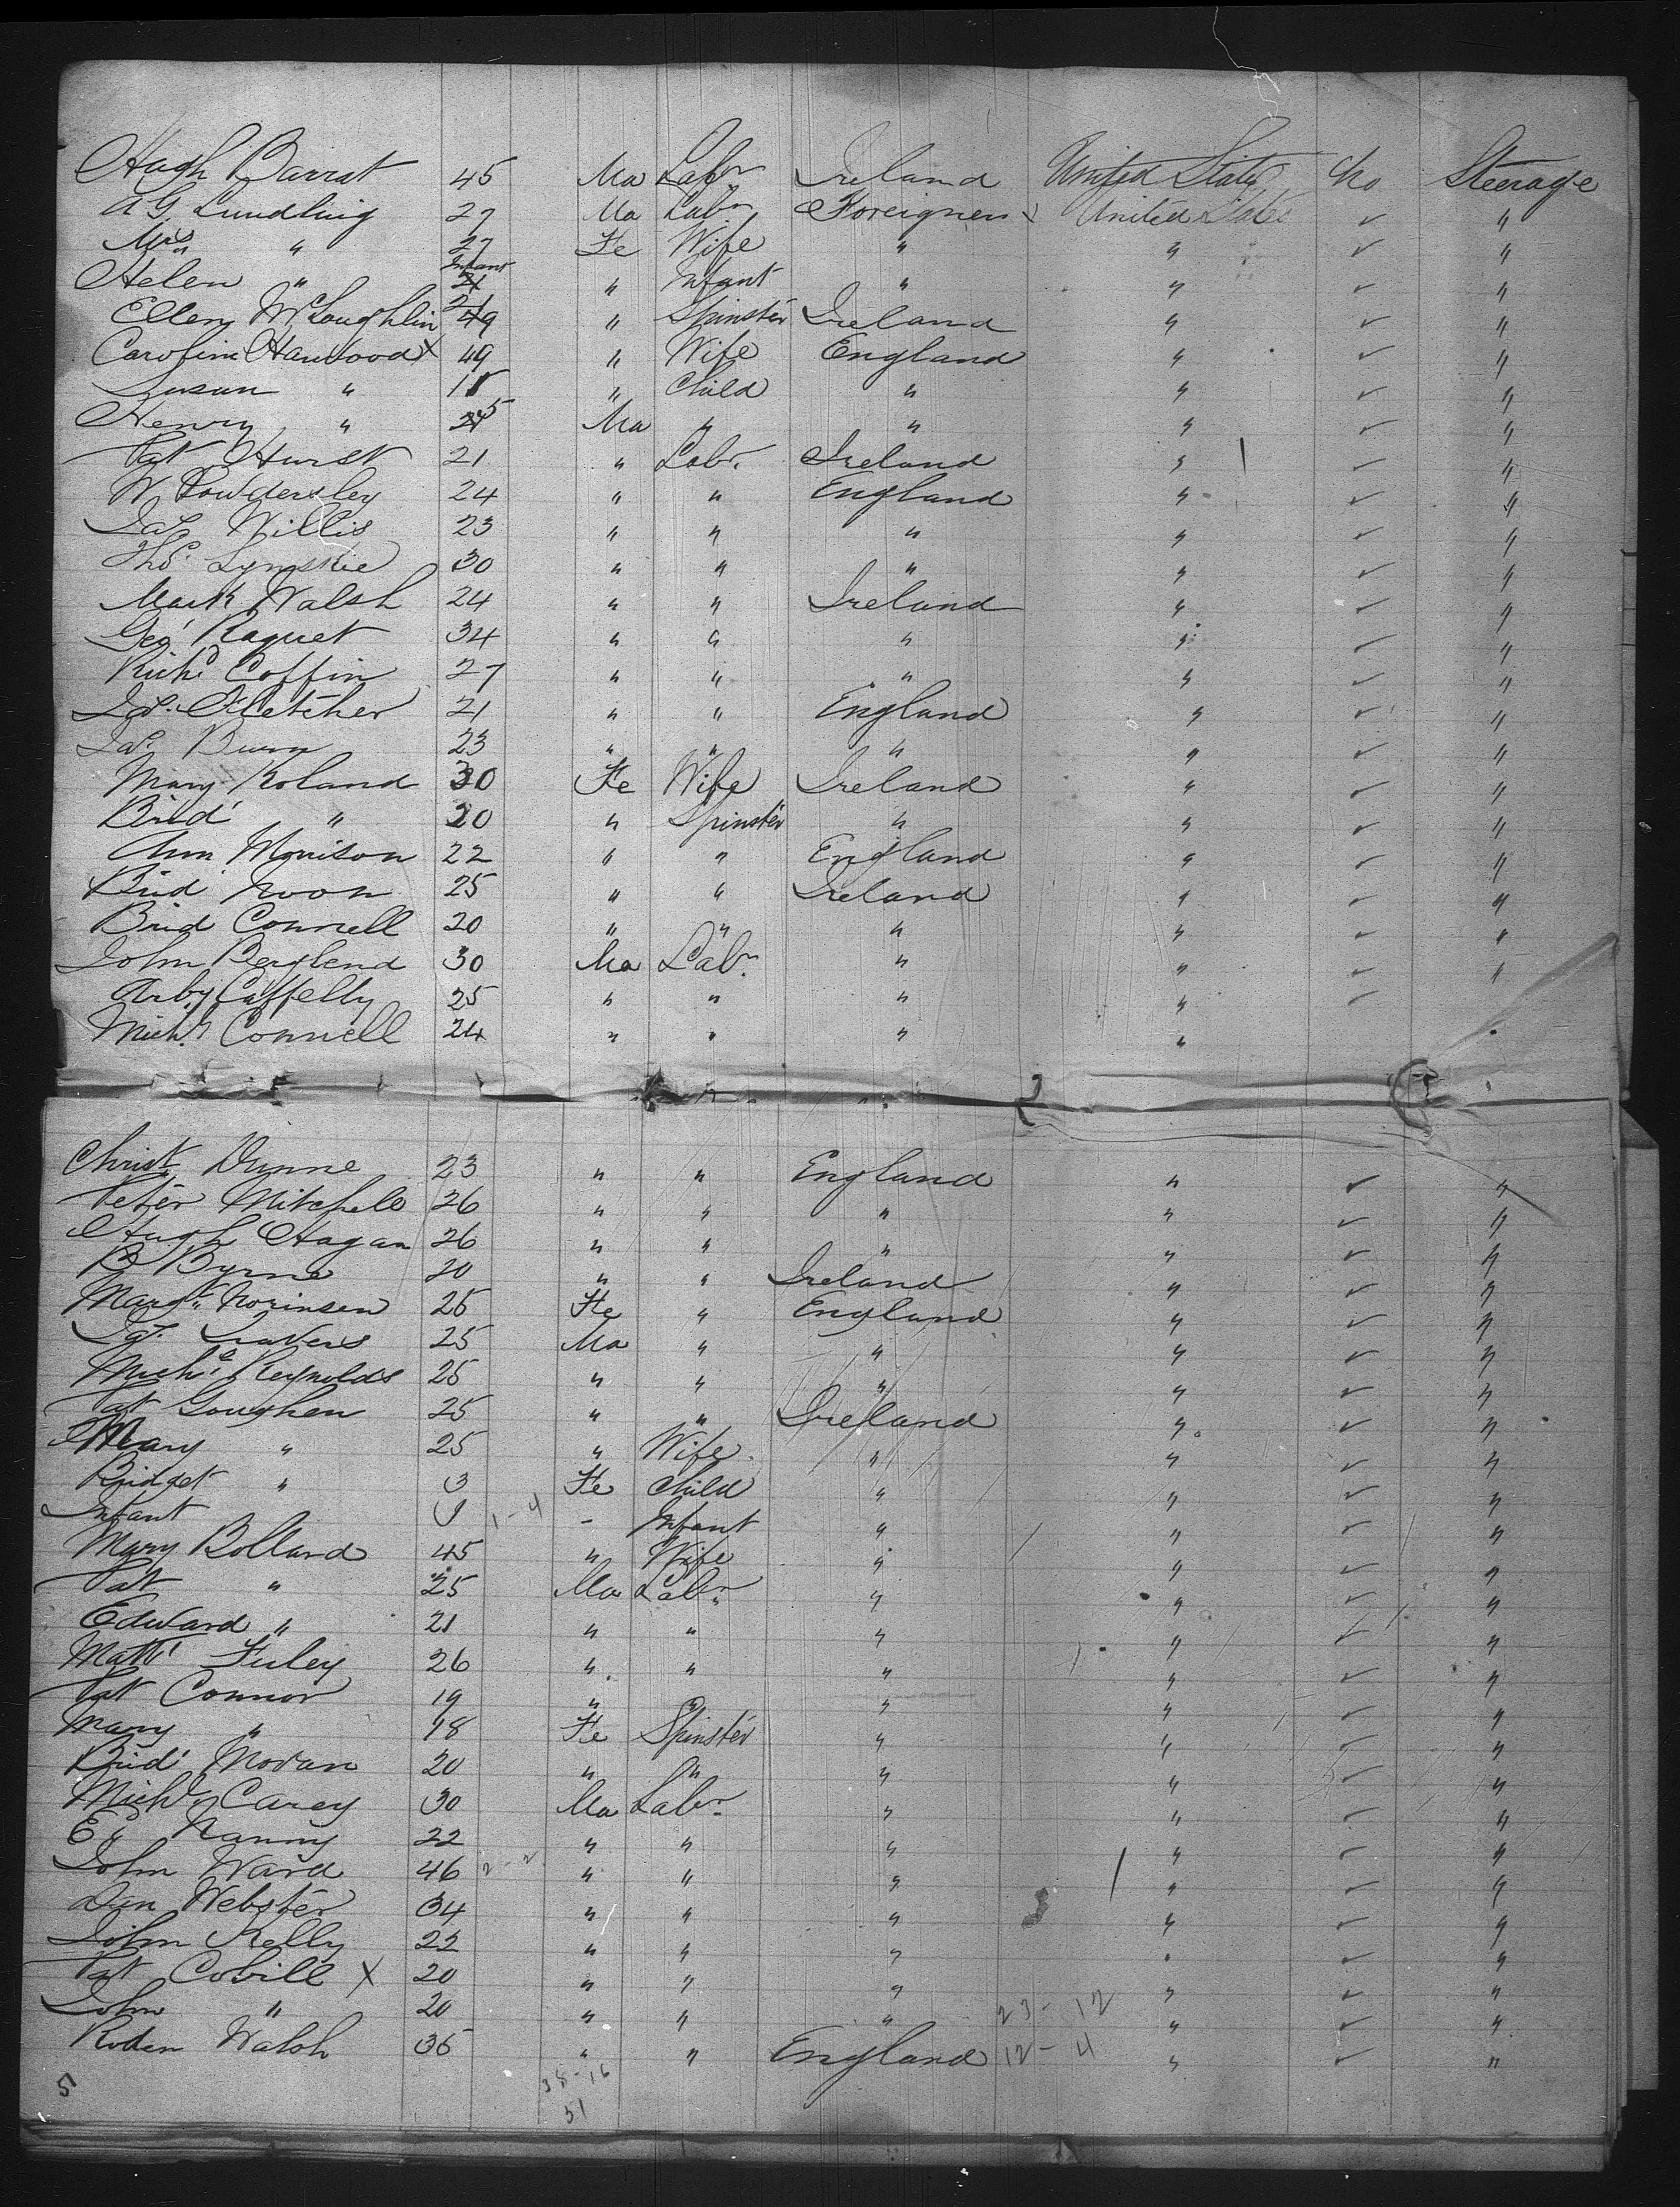 Hugh Barrat 45 Ma Labr Ireland United States No Steerage
A G. Lundling 27 Ma Labr Foreigners United States ✓ "
Mrs " 27 Fe Wife " " ✓ "
Helen " Infant " Infant " " ✓ "
Ellen McLoughlin 21 " Spinster Ireland " ✓ "
Caroline Harwood X 49 " Wife England " ✓ "
Susan " 11 " Child " " ✓ "
Henry " 5 Ma " " " ✓ "
Pat Hurst 21 " Labr. Ireland " ✓ "
W Powdersley 24 " " England " ✓ "
Jas Willis 23 " " " " ✓ "
Thos. Lynskie 30 " " " " ✓ "
Mark Walsh 24 " " Ireland " ✓ "
Geo Raquet 34 " " " " ✓ "
Richd Coffin 27 " " " " ✓ "
Jas. Fletcher 21 " " England " ✓ "
Jas. Burn 23 " " " " ✓ "
Mary Roland 30 Fe Wife Ireland " ✓ "
Brid " 20 " Spinster " " ✓ "
Ann Morrison 22 " " England " ✓ "
Brid Noon 25 " " Ireland " ✓ "
Brid Connell 20 " " " " ✓ "
John Berglend 30 Ma Labr. " " ✓ "
Arby Caffelly 25 " " " " ✓
Michl. Connell 24 " " " "
Christ Dunne 23 " " England " ✓ "
Peter Mitchell 26 " " " " ✓ "
Hugh Hagan 26 " " " " ✓ "
B Byrne 20 " " Ireland " ✓ "
Margt Norinsen 25 Fe " England " ✓ "
Jas. Travers 25 Ma " " " ✓ "
Michl Reynolds 25 " " " " ✓ "
Pat Goughen 25 " " Ireland " ✓ "
Mary " 25 " Wife " " ✓ "
Bridget " 3 Fe Child " " ✓ "
Infant 1-4 - Infant " " ✓ "
Mary Bolland 45 " Wife " " ✓ "
Pat " 25 Ma Labr. " " ✓ "
Edward " 21 " " " " ✓ "
Matt Fuley 26 " " " " ✓ "
Pat Connor 19 " " " " ✓ "
Mary " 18 Fe Spinster " " ✓ "
Brid Moran 20 " " " " ✓ "
Michl Carey 30 Ma Labr. " " ✓ "
Ed Nanny 22 " " " " ✓ "
John Ward 46 2-2 " " " " ✓ "
Dan Webster 34 " " " 3 " ✓ "
John Kelly 22 " " " " ✓ "
Pat Cobill X 20 " " " " ✓ "
John " 20 " " " 23-12 " ✓ "
Roden Walsh 35 " " England 12-4 " ✓ "
51 35-16
51